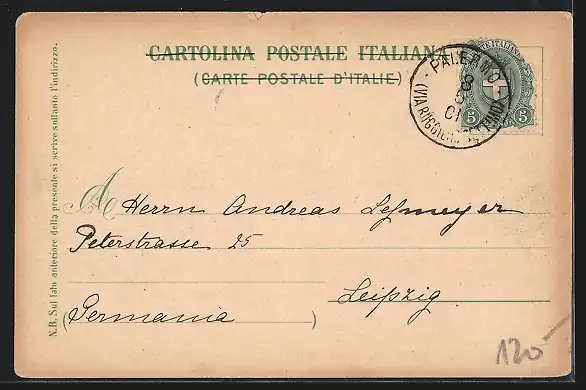 CARTOLINA POSTALE ITALIANA
(CARTE POSTALE D'ITALIE)
PALERMO
8
5
01
(VIA RUGGIERO SETTIMO)
5 5
N.B. Sul lato anteriore della presente si scrive soltanto l'indirizzo.
A Herrn Andreas Lessmeyer
Peterstrasse 25
Leipzig
(Germania)
120